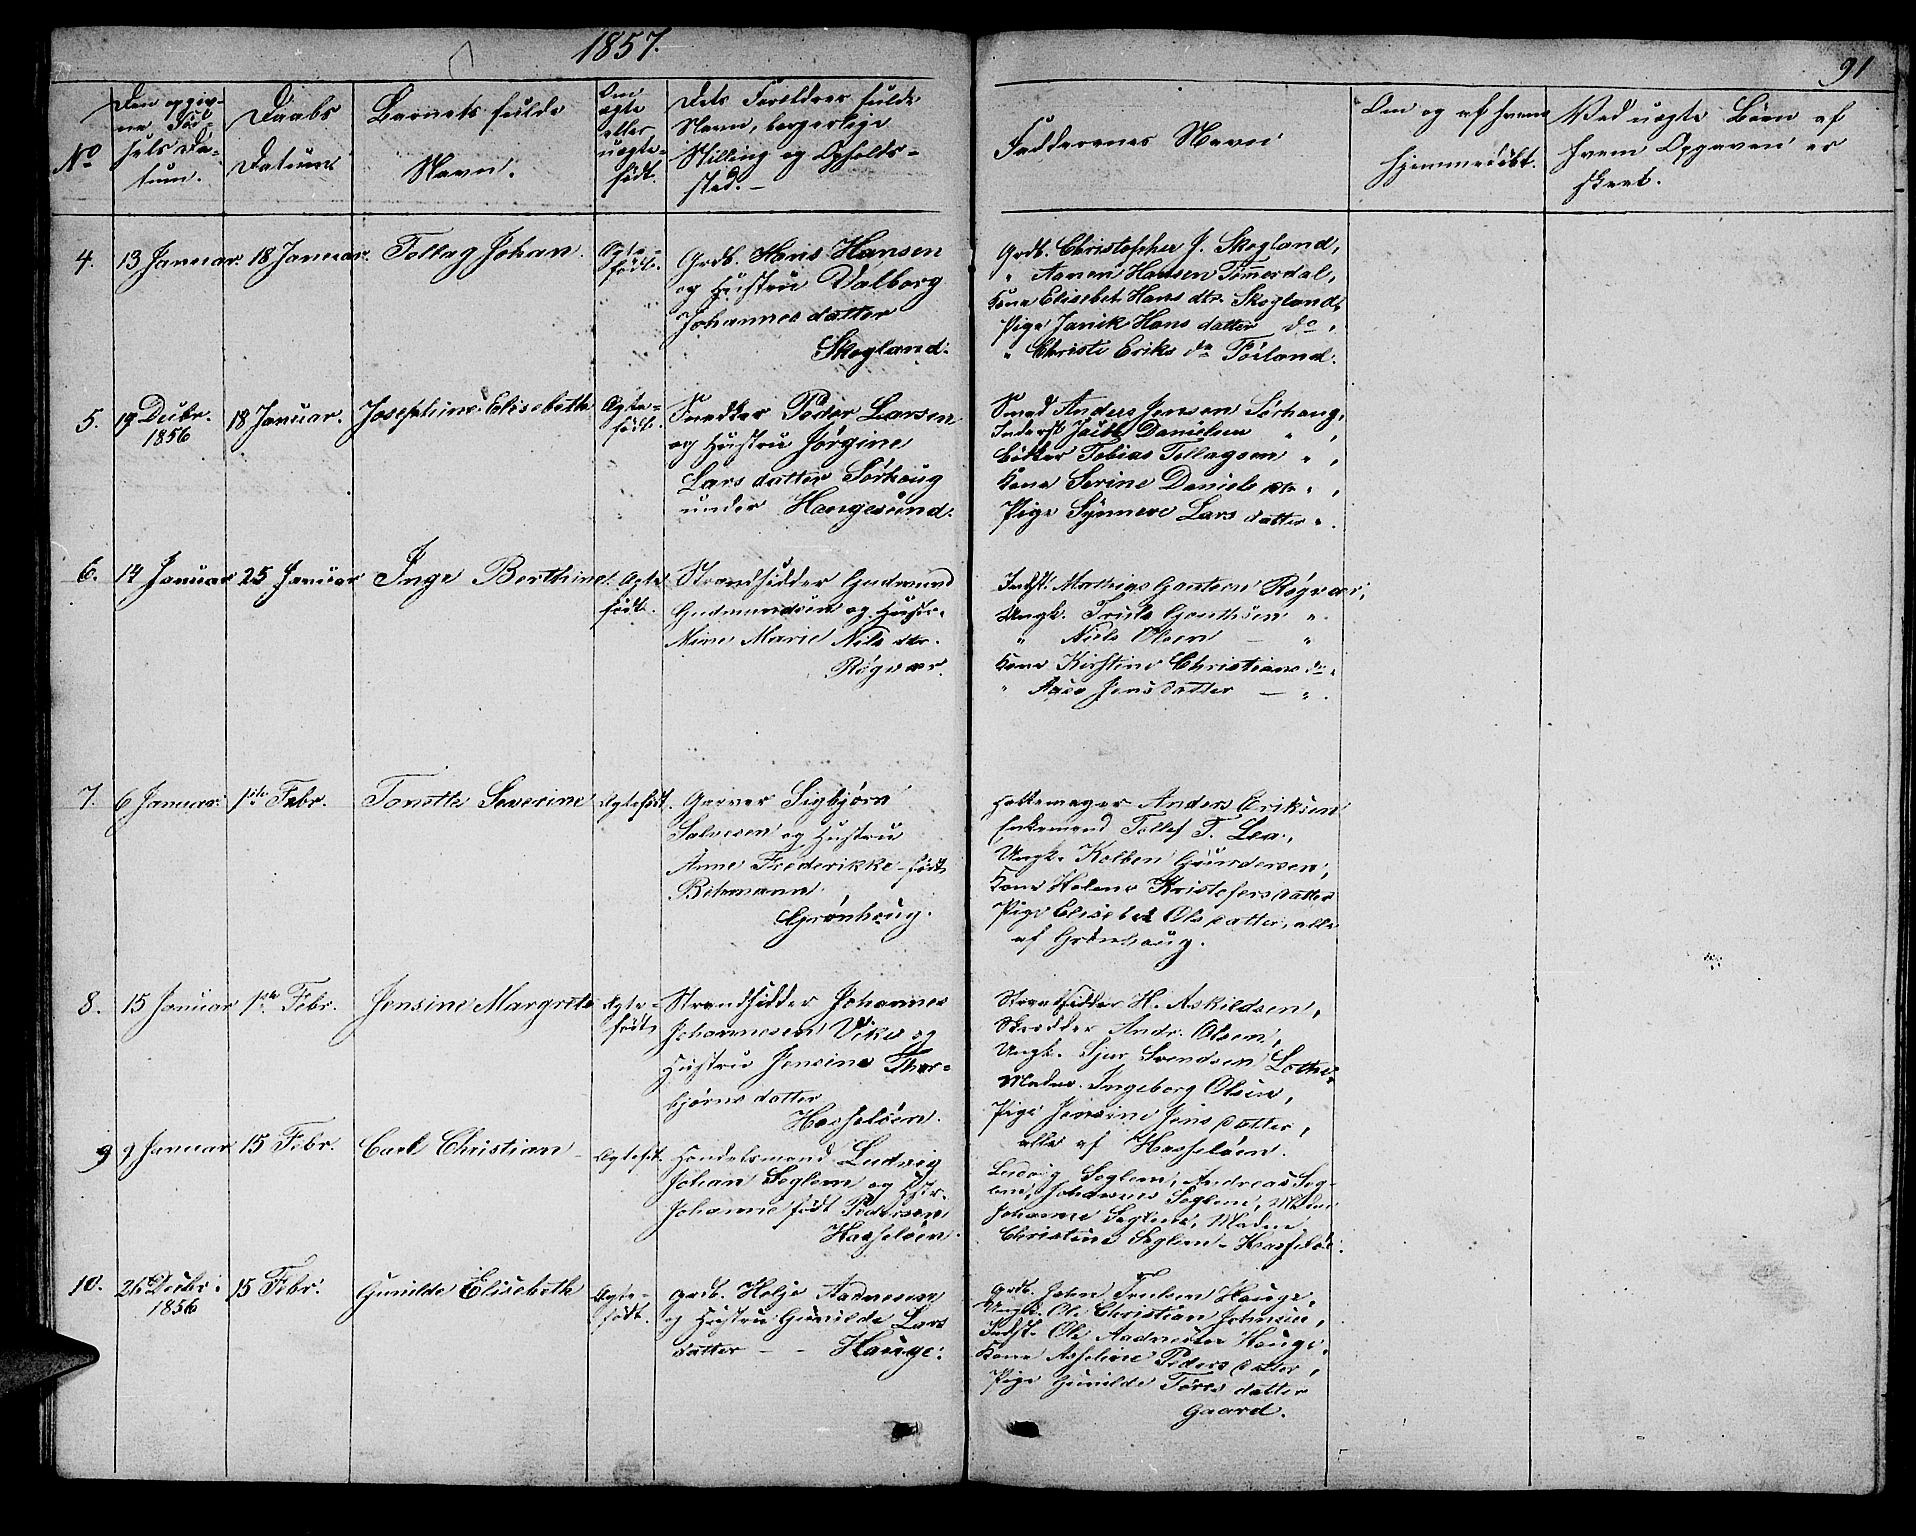 1857.
91
No
Den opgiv-
ne Fød-
sels Da-
tum.
Daabs
Datum
Barnets fulde
Navn.
Om
ægte
eller
uægte
født.
Dets Forældres fulde
Navn, borgerlige
Stilling og Opholds-
sted.-
Faddernes Navn
Om og af hvem
hjemmedøbt.
Ved uægte Børn af
hvem Opgaven er
skeet.
4. 13 Januar. 18 Januar. Tollag Johan. Ægte
født.
Grdb. Hans Hansen
og Hustru Valborg
Johannesdatter
Skogland.
Grdb. Christopher J. Skogland,
" Aanen Hansen Tømerdal,
Kone Elisebet Hans dtr. Skogland,
Pige Janik Hans datter do,
" Christi Eriks da Førland.
5. 19 Decbr.
1856
18 Januar. Josephine Elisebeth Ægte-
født.
Snedker Peder Larsen
og Hustru Jørgine
Lars datter Sørhaug
under Haugesund.
Smed Anders Jensen Sørhaug,
Inderst Jacob Danielsen " ,
Bødker Tobias Tollagsen " ,
Kone Serine Daniels dtr " ,
Pige Synneve Lars datter ".
6. 14 Januar 25 Januar Inge Berthine Ægte
født.
Strandsidder Gudmund
Gudmundsen og Hustr.
Mine Marie Nils dtr.
Røgvær.
Indst. Mathias Røgvær,
Ungk. Truls ".
" Niels Olsen - "
Kone Kirstine Christians dr "
" Jensdatter - ".
7. 6 Januar 1ste Febr. Severine Ægtefødt.
Garver Sigbjørn
Salvesen og Hustru
Anne Frederikke født
Grønhoug.
Anders Eriksen
Enkemand Tollef T. Lea,
Ungk. Kolben Gundersen,
Kone Helene Kristofersdatter
Pige Elisebet Ols datter, alle
af Grønhaug.
8. 15 Januar 1ste Febr. Jensine Margrete Ægte-
født
Strandsidder Johannes
Johannesen Vike og
Hustru Jensine Thor-
bjørns datter
Hasseløen.
Strandsidder H. Askildsen,
Skrædder Andr. Olsen,
Ungk. Sjur Svendsen Lothe,
Madm. Ingeborg Olsen,
Pige Jensine Jens datter,
alle af Hasseløen.
9 9 Januar 15 Febr. Carl Christian - Ægtefdt.
Handelsmand Ludvig
Johan Seglem og Hstr.
Johanne født Pedersen
Hasseløen.
Ludvig Seglem, Andreas Seg-
lem, Johannes Seglem, Madm
Johanne Seglem, Madm
Christine Seglem - Hasseløe.
10. 26 Decbr.
1856
15 Febr. Gunilde Elisebeth Ægte-
født.
Grdb. Helje Aadnesen
og Hustru Gunilde Lars
datter - - Hauge.
Grdb. John Trulsen Hauge,
Ungk. Ole Christian Johnsen,
Indst. Ole Aadnesen Hauge,
Kone Asseline Peders datter,
Pige Gunilde Tores datter
Gaard.